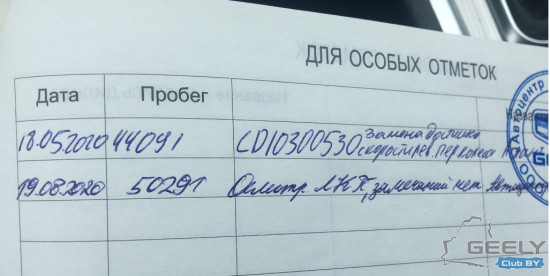 ДЛЯ ОСОБЫХ ОТМЕТОК
Дата Пробег
18.05.2020 44091 CD10300530 Замена датчика
скорости лев. пер колеса
19.08.2020 50291 Осмотр ЛКП, замечаний нет
GEELY
Club BY